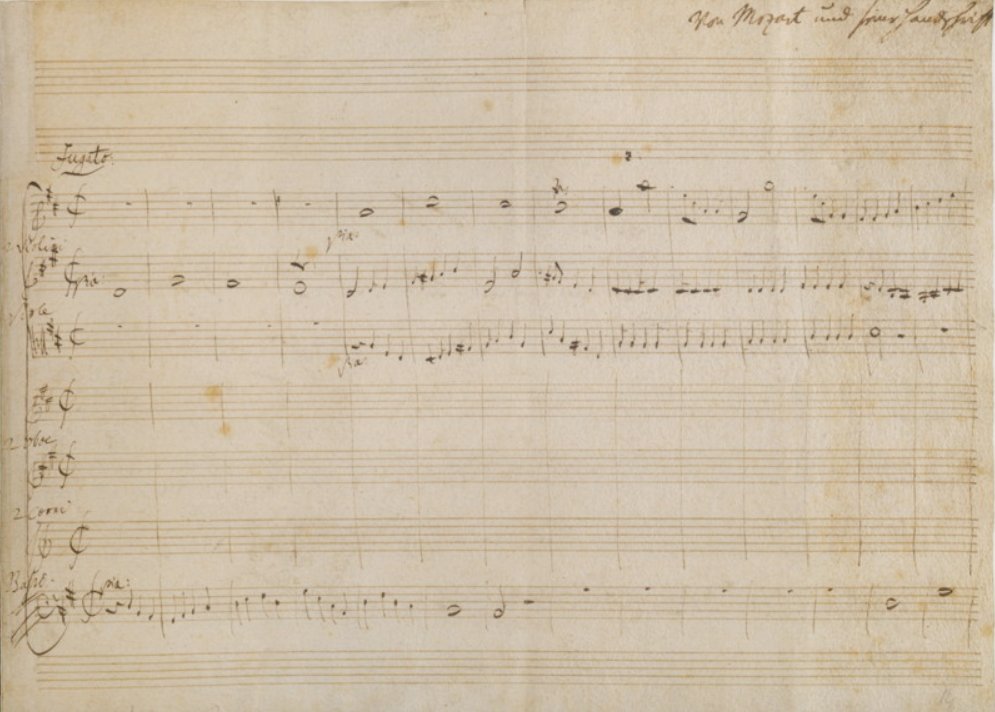 Von Mozart und seine Handschrift
Fugato:
2 Violini
pia:
pia:
Viole
pia:
2 Oboe
2 Corni
Bassi
pia: